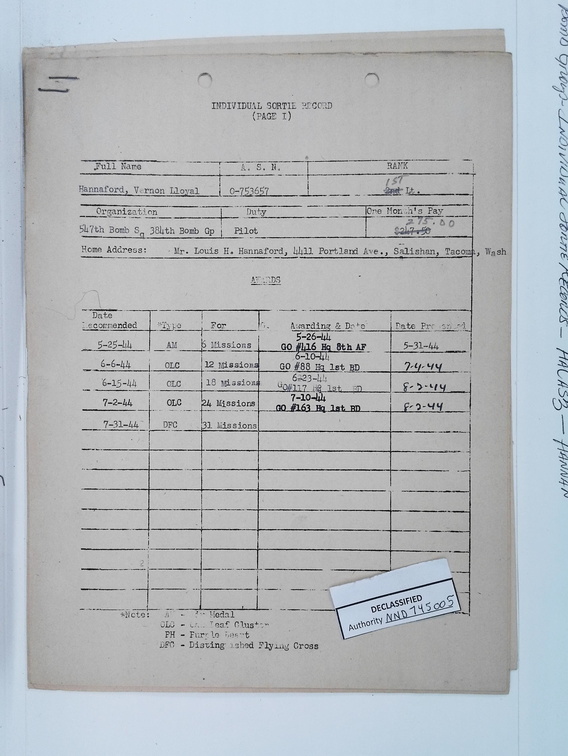 INDIVIDUAL SORTIE RECORD
(PAGE I)
Full Name A. S. N. RANK
Hannaford, Vernon Lloyal 0-753657 1ST Lt.
Organization Duty One Month's Pay
547th Bomb Sq 384th Bomb Gp Pilot 275.00 $247.50
Home Address: Mr. Louis H. Hannaford, 4411 Portland Ave., Salishan, Tacoma, Wash
AWARDS
Date
Recommended *Type For Awarding & Date Date Presented
5-25-44 AM 6 Missions 5-26-44 GO #416 Hq 8th AF 5-31-44
6-6-44 OLC 12 Missions 6-10-44 GO #88 Hq 1st BD 7-4-44
6-15-44 OLC 18 Missions 6-23-44 GO#117 Hq 1st BD 8-2-44
7-2-44 OLC 24 Missions 7-10-44 GO #163 Hq 1st BD 8-2-44
7-31-44 DFC 31 Missions
*Note: AM - Air Medal
OLC - Oak Leaf Cluster
PH - Purple Heart
DFC - Distinguished Flying Cross
DECLASSIFIED
Authority NND 745005
Bomb Group - Individual Sortie Records - HALASZ - HANNAN